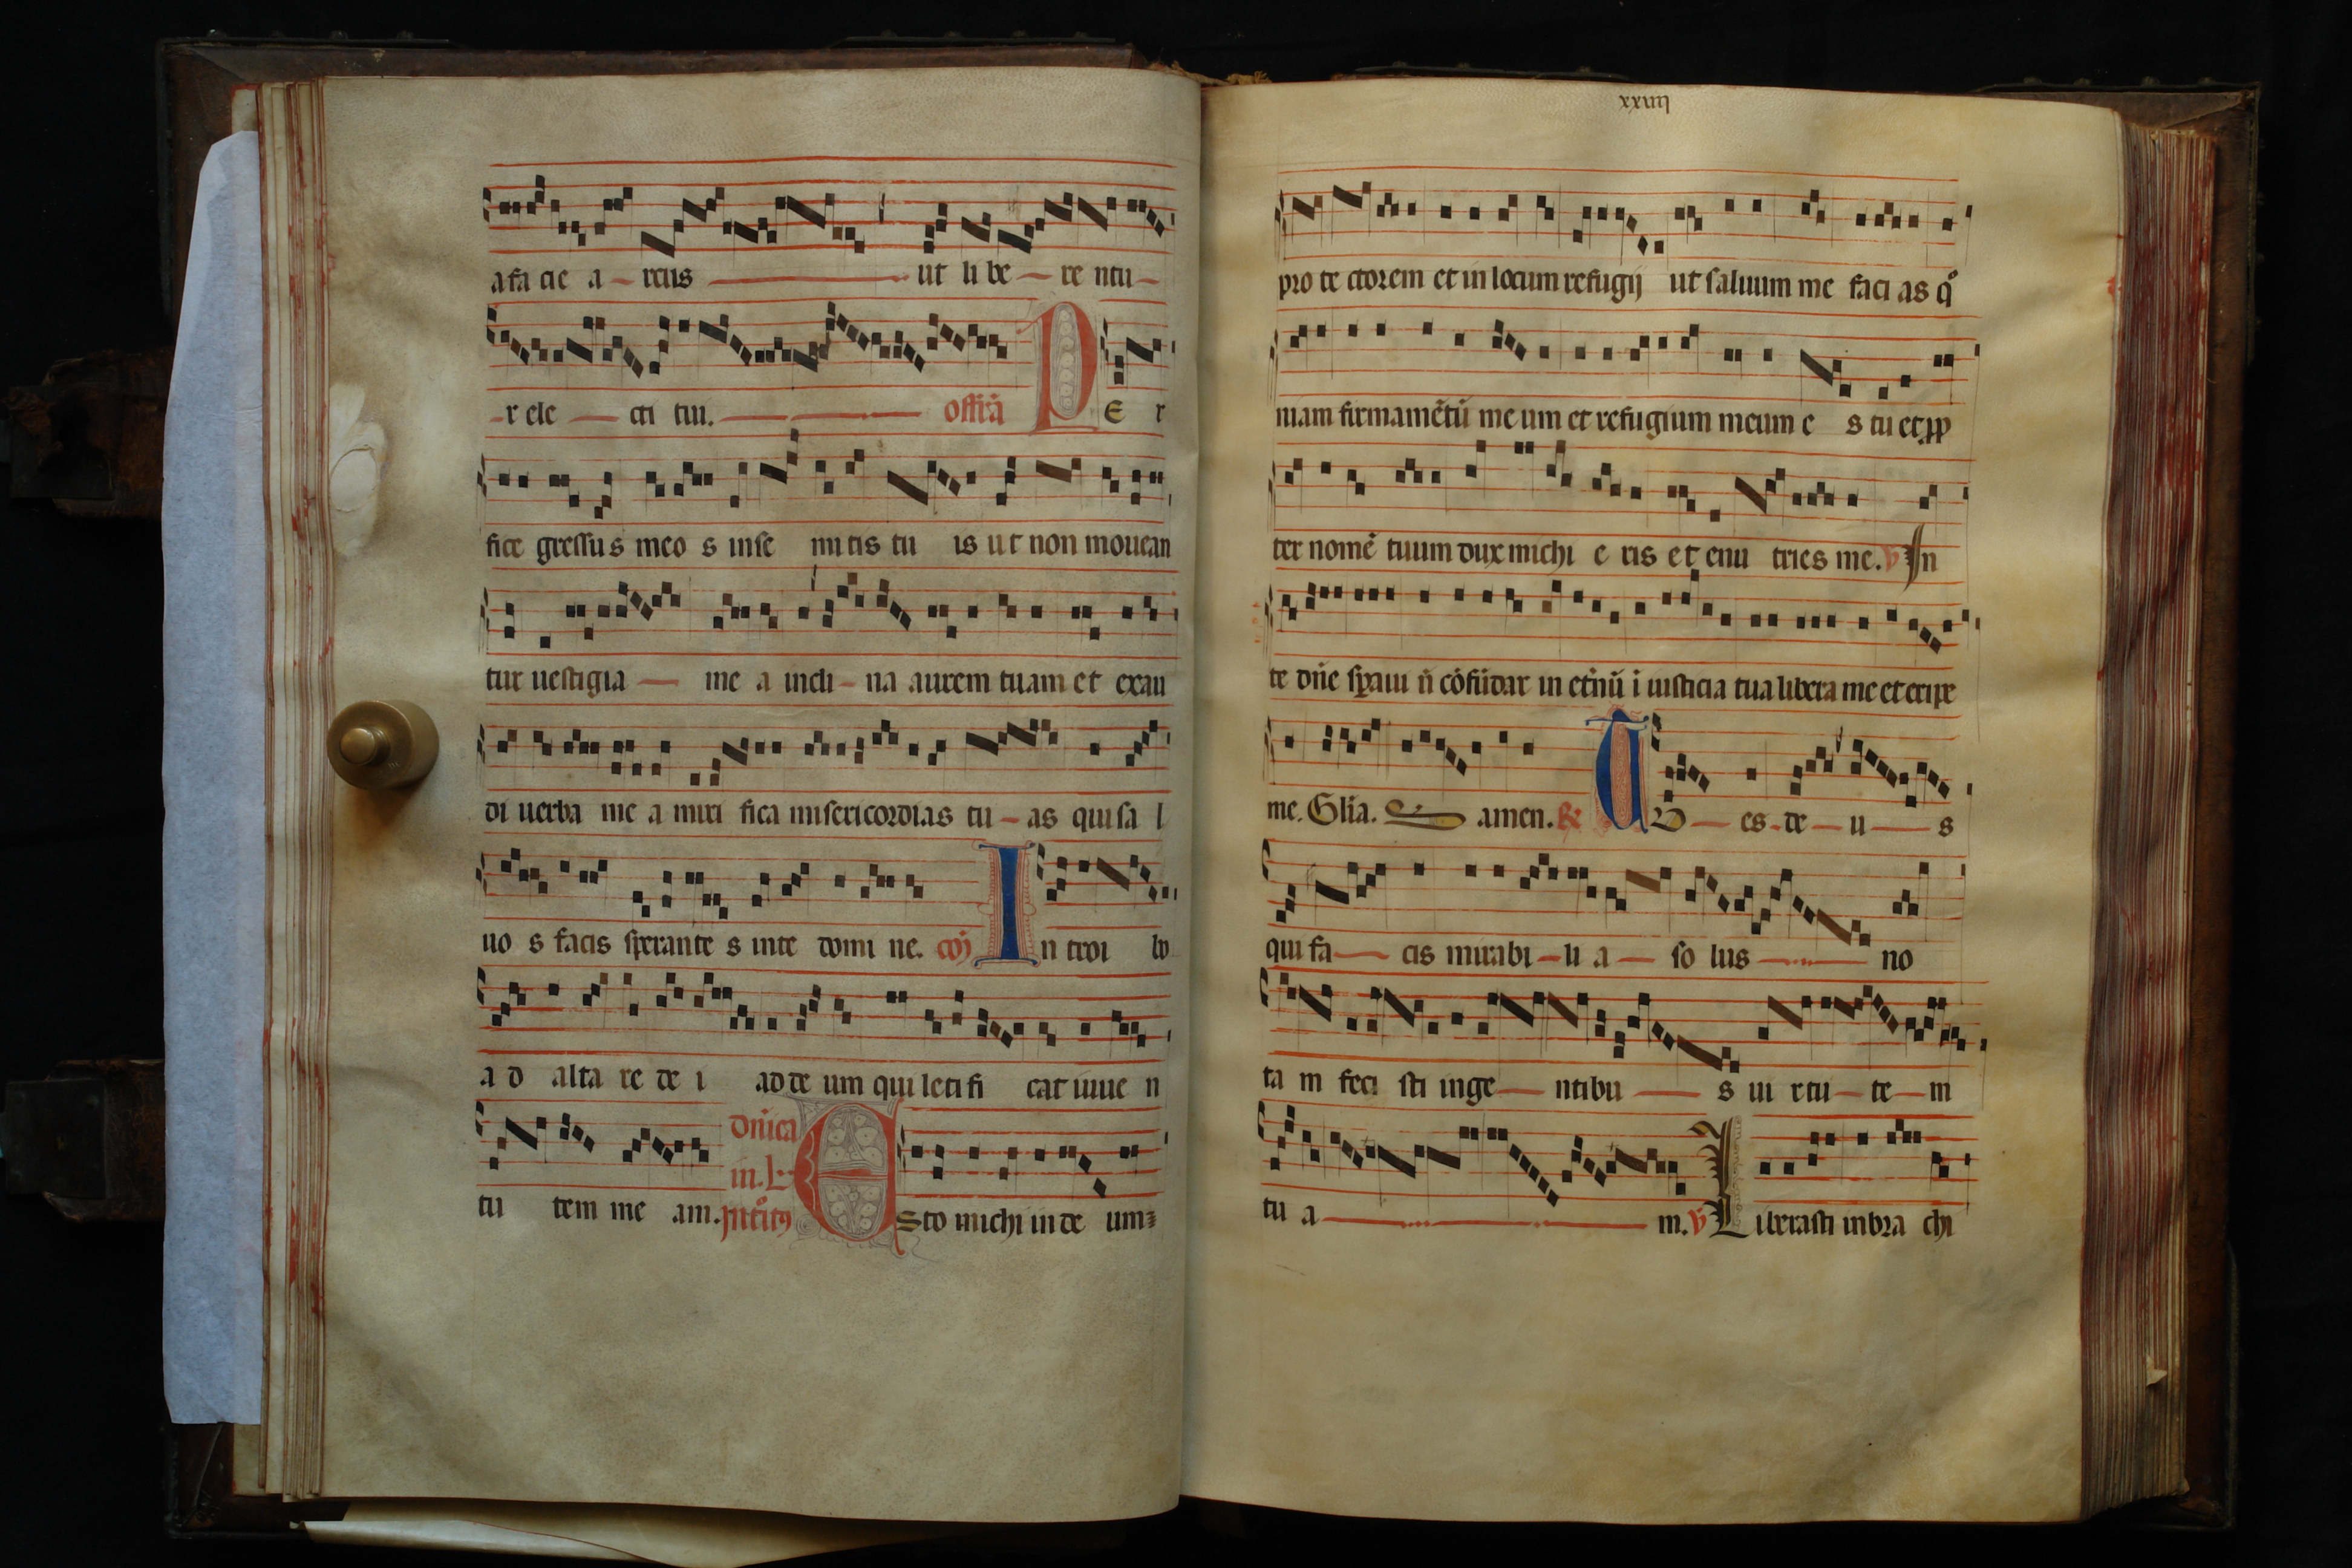 a fa cie a rcus ut li be re ntu
r ele cti tui. offr̄a P E r
fice gressu s meo s in se mi tis tu is ut non mouean
tur uestigia me a incli na aurem tuam et exau
di uerba me a miri fica misericordias tu as qui sa l
uo s facis sperante s in te domi ne. coī I n troi bo
a d alta re de i ad de um qui leti fi cat iuue n
tu tem me am. dn̄ica in .L. Introitꝯ E sto michi in de um
xxiiij
pro te ctorem et in locum refugij ut saluum me faci as qͦ
niam firmamētū me um et refugium meum e s tu et ꝓp
ter nomē tuum dux michi e ris et enu tries me. v̄ In
te dn̄e sꝑaui n̄ cōfūdar in et̄nū ī iusticia tua libera me et eripe
me. Glīa. amen. R T V es de u s
qui fa cis mirabi li a so lus no
ta m feci sti in ge ntibu s ui rtu te m
tu a m. v̄ L iberasti in bra chi